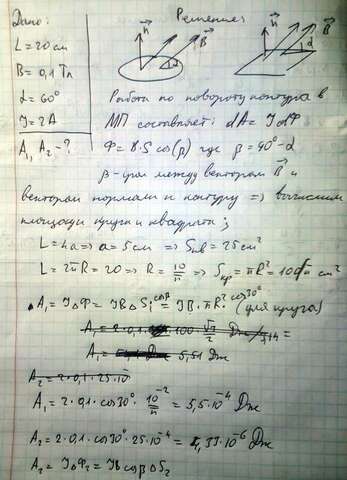 Дано:
Решение:
L = 20 см
B = 0,1 Тл
α = 60°
I = 2А
A₁, A₂ - ?
n
B
α
n
B
α
Работа по повороту контура в
МП составляет: dA = I dФ
Ф = B·S cos(β) где β = 90° - α
β - угол между вектором B и
вектором нормали к контуру => вычислим
площади круга и квадрата;
L = 4a => a = 5 см => Sкв = 25 см²
L = 2πR = 20 => R = 10/π => Sкр = πR² = 100/π см²
A₁ = IΔФ = IBΔS₁cosβ = IB·πR²·cos30° (для круга)
A₁ = 5,51 Дж
A₂ = 2·0,1·25·10
A₁ = 2·0,1·cos30°·10⁻²/π = 5,5·10⁻⁴ Дж
A₂ = 2·0,1·cos30°·25·10⁻⁴ = 4,33·10⁻⁶ Дж
A₂ = IΔФ₂ = IB cosβ ΔS₂